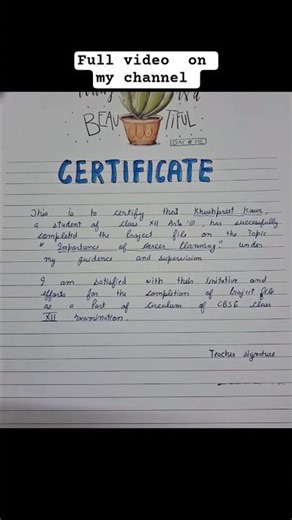 Full video on
my channel
BEAU TIFUL
CERTIFICATE
This is to certify that Khushpreet Kaur,
a student of class XII Arts, has successfully
completed the Project file on the Topic
" Importance of Career Planning" under
my guidence and supervision.
I am satisfied with their Initative and
efforts for the completion of Project file
as a Part of Circulum of CBSE Class
XII Examination.
Teacher signature